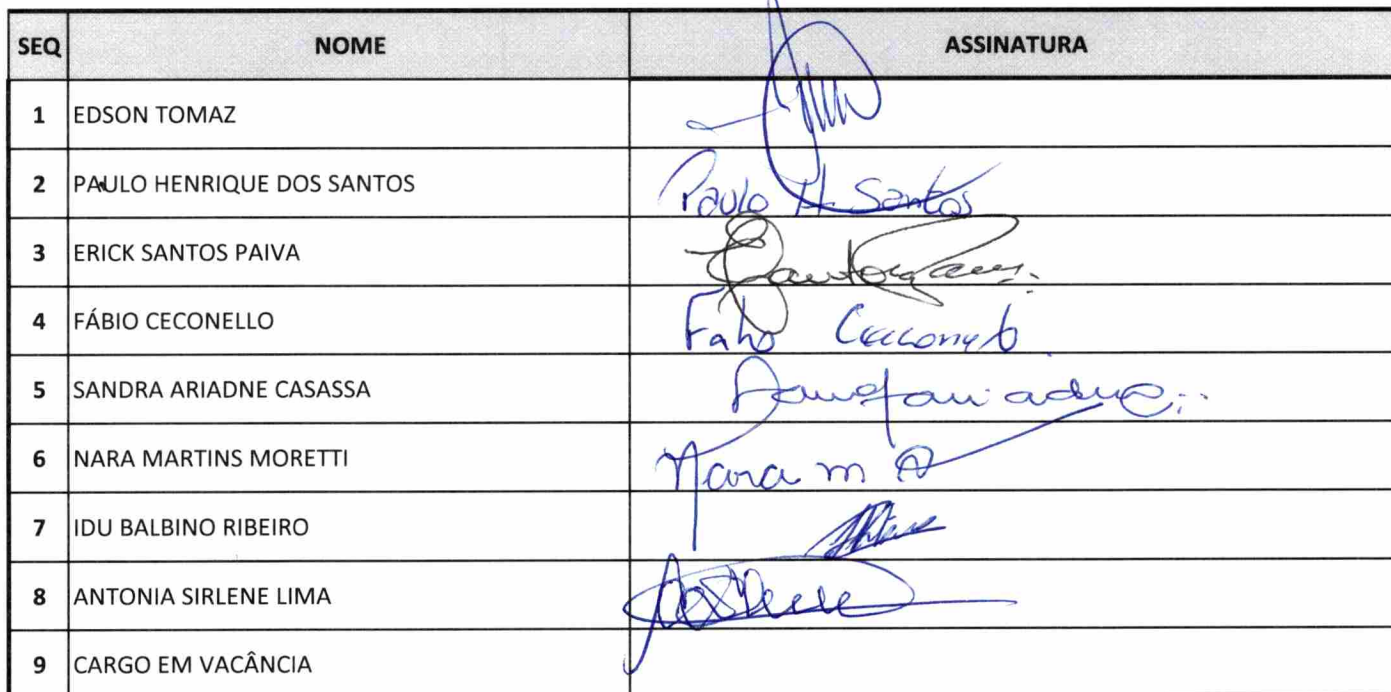 SEQ NOME ASSINATURA
1 EDSON TOMAZ
2 PAULO HENRIQUE DOS SANTOS Paulo H Santos
3 ERICK SANTOS PAIVA
4 FÁBIO CECONELLO
5 SANDRA ARIADNE CASASSA
6 NARA MARTINS MORETTI Nara m
7 IDU BALBINO RIBEIRO
8 ANTONIA SIRLENE LIMA
9 CARGO EM VACÂNCIA